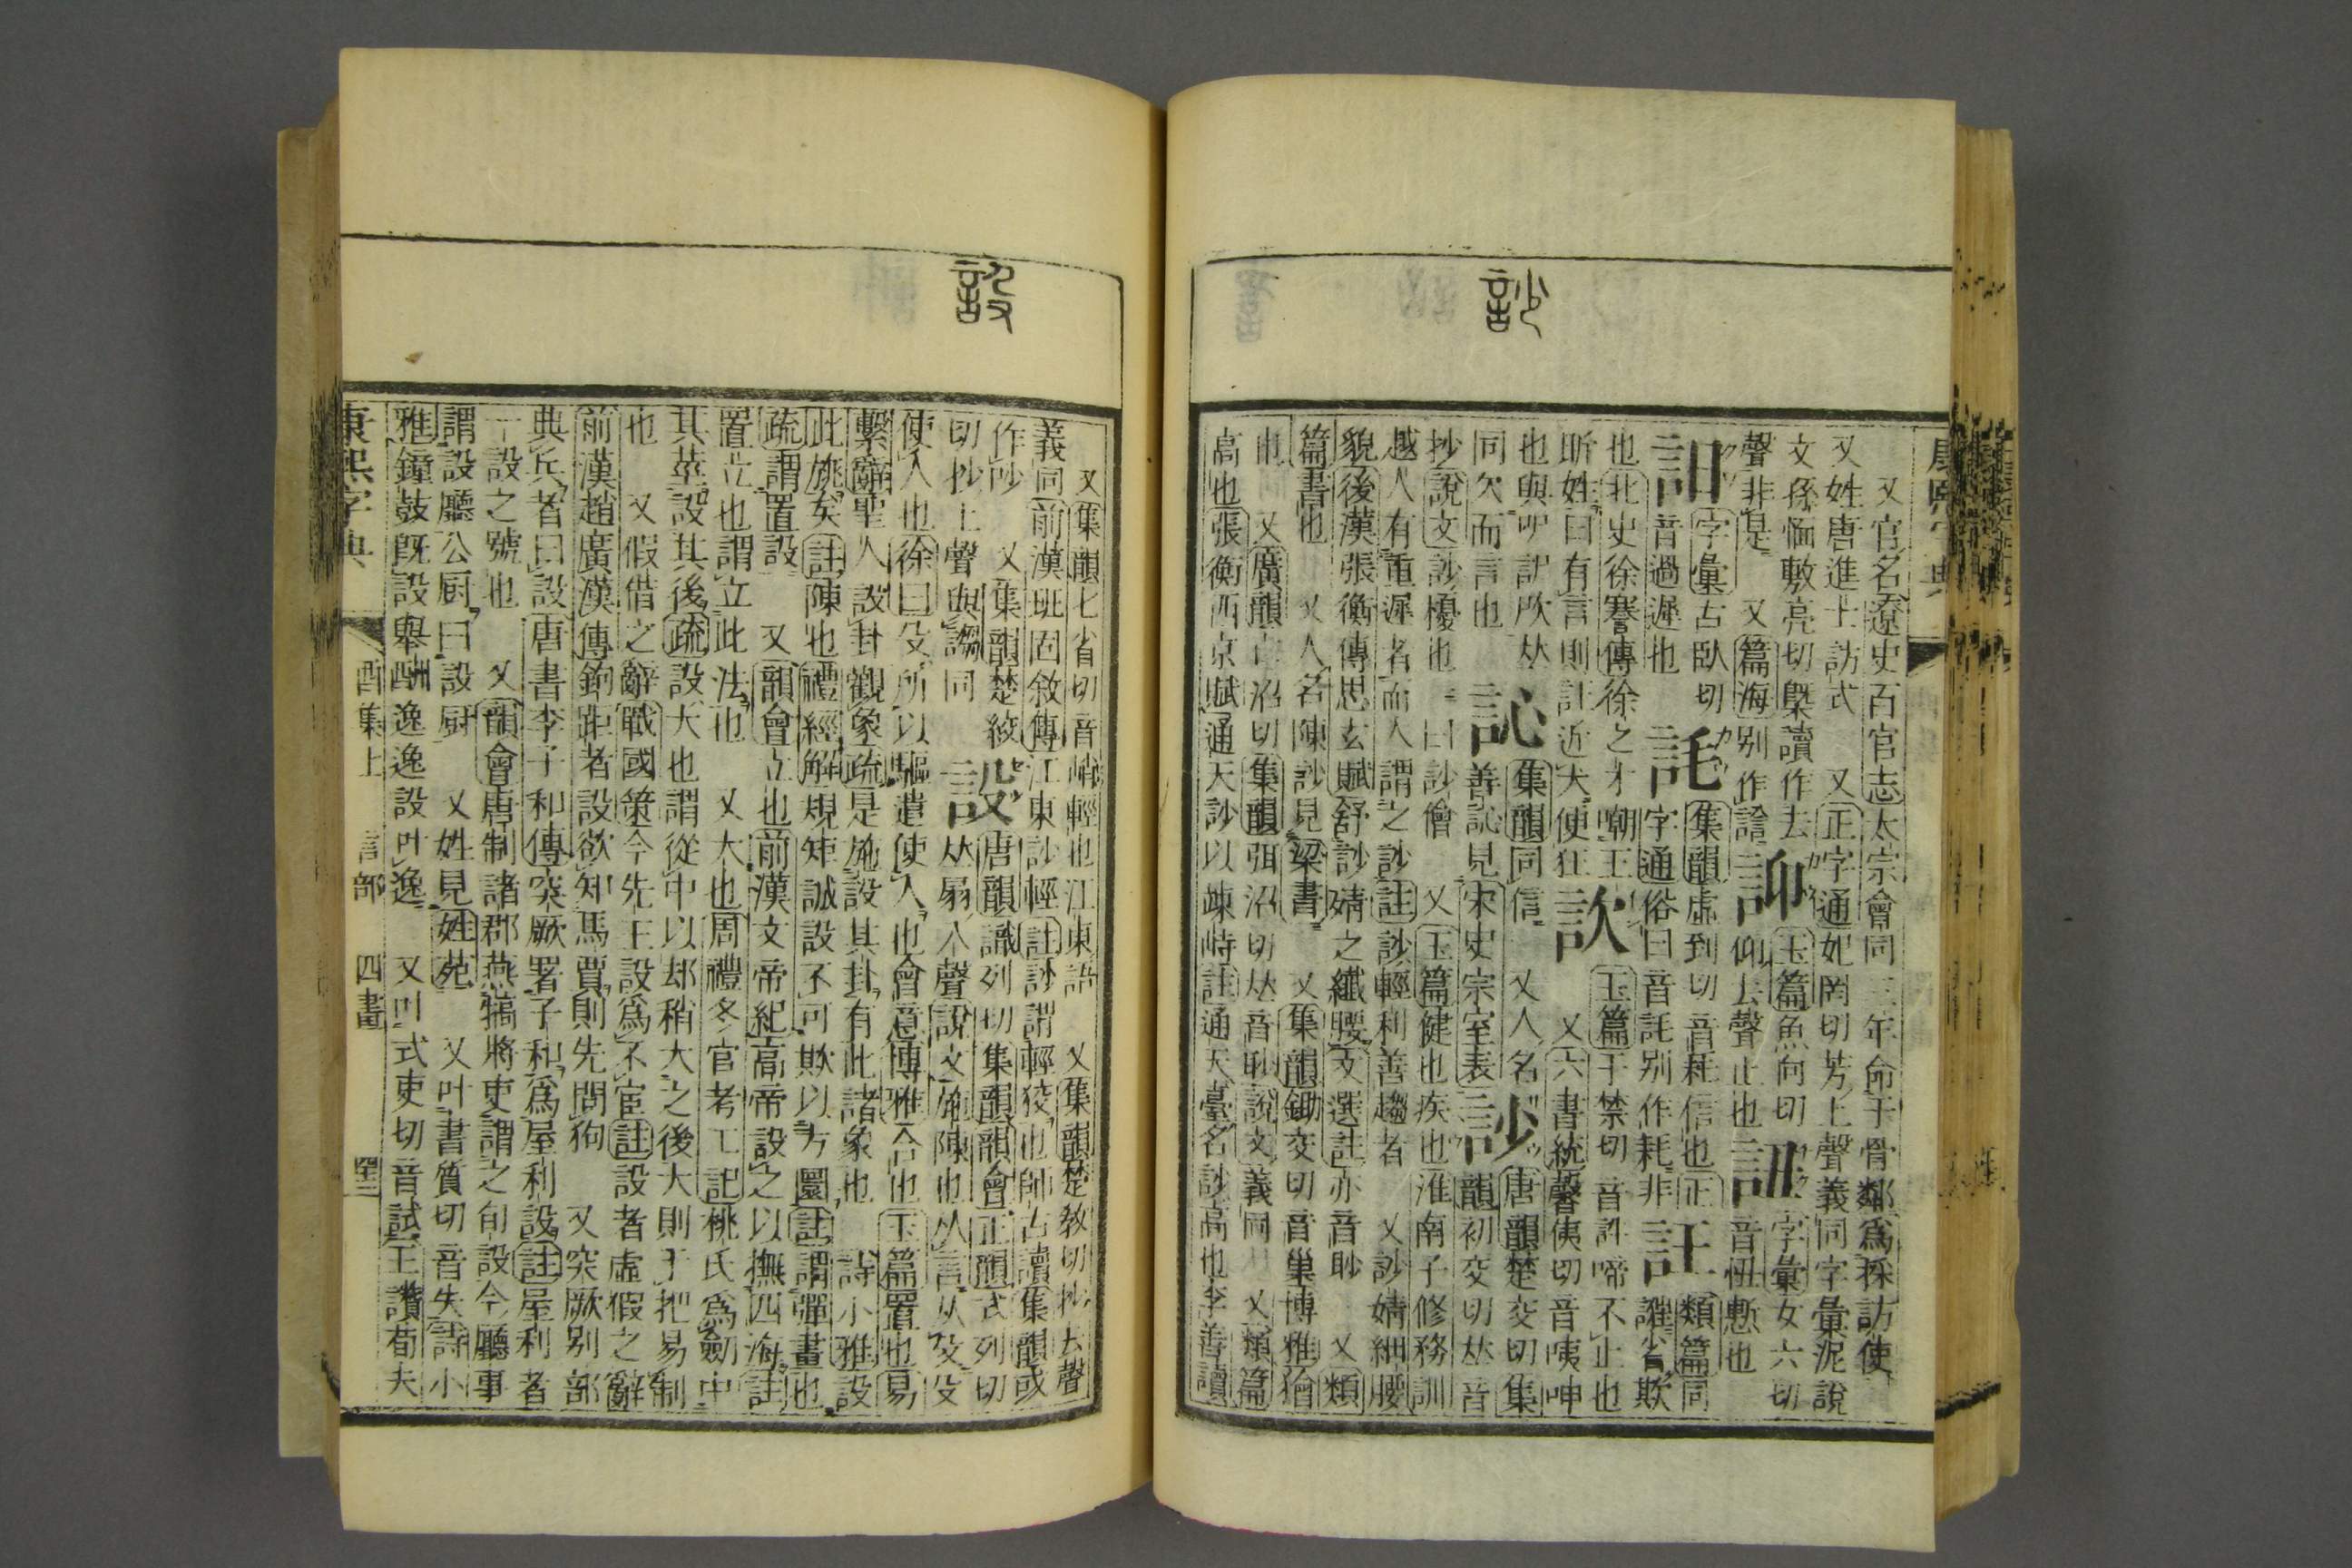 訬
又官名遼史百官志太宗會同三年命于骨鄰爲採訪使
又姓唐進士訪式 又正字通妃罔切芳上聲義同字彙泥說
文孫愐敷亮切槩讀作去 䛊 玉篇魚向切 仰去聲止也 䚼 字彙女六切 音忸慙也
聲非是 又篇海别作
字彙古臥切 音過遲也 託 集韻虛到切音耗信也正字通俗曰音託别作耗非 䚽 類篇同誑省欺
也北史徐謇傳徐之才嘲王
昕姓曰有言則䚽近犬便狂 訡 玉篇于禁切音 啼不止也 又六書統馨侇切音咦呻
也與吚 䚷 集韻同信 又人名 善訫見宋史宗室表 訬 唐韻楚交切集韻初交切𠀤音
同欠而言也
抄說文訬擾也一曰訬獪 又玉篇健也疾也淮南子修務訓
越人有重遲者而人謂之訬註訬輕利善趨者 又訬婧細腰
貌後漢張衡傳思玄賦舒訬婧之纖腰文選註亦音眇 又類
篇書也 又人名陳訬見梁書 又集韻鋤交切音巢博雅獪
也 又廣韻亡沼切集韻弭沼切𠀤音眇說文義同 又類篇
高也張衡西京賦通天訬以竦峙註通天臺名訬高也李善讀
設
又集韻七肖切音峭輕也江東語 又集韻楚敎切抄去聲
義同前漢班固敘傳江東訬輕註訬謂輕狡也師古讀集韻或
作吵 又集韻楚絞切抄上聲與謅同 設 唐韻識列切集韻韻會正韻式列切𠀤扇入聲說文施陳也从言从殳殳
使人也徐曰殳所以驅遣使人也會意博雅合也玉篇置也易
繫辭聖人設卦觀象疏是施設其卦有此諸象也 詩小雅設
此旐矣註陳也禮經解規矩誠設不可欺以方圜註謂彈畫也
疏謂置設 又韻會立也前漢文帝紀高帝設之以撫四海註
置立也謂立此法也 又大也周禮冬官考工記桃氏爲劒中
其莖設其後疏設大也謂從中以却稍大之後大則于把易制
也 又假借之辭戰國策今先王設爲不宦註設者虛假之辭
前漢趙廣漢傳鉤距者設欲知馬賈則先問狗 又突厥别部
典兵者曰設唐書李子和傳突厥署子和爲屋利設註屋利者
一設之號也 又韻會唐制諸郡燕犒將吏謂之旬設今廳事
謂設廳公厨曰設厨 又姓見姓苑 又叶書質切音失詩小
雅鐘鼓旣設舉酬逸逸設叶逸 又叶式吏切音試王讚荀夫
康熙字典 酉集上 言部 四畫